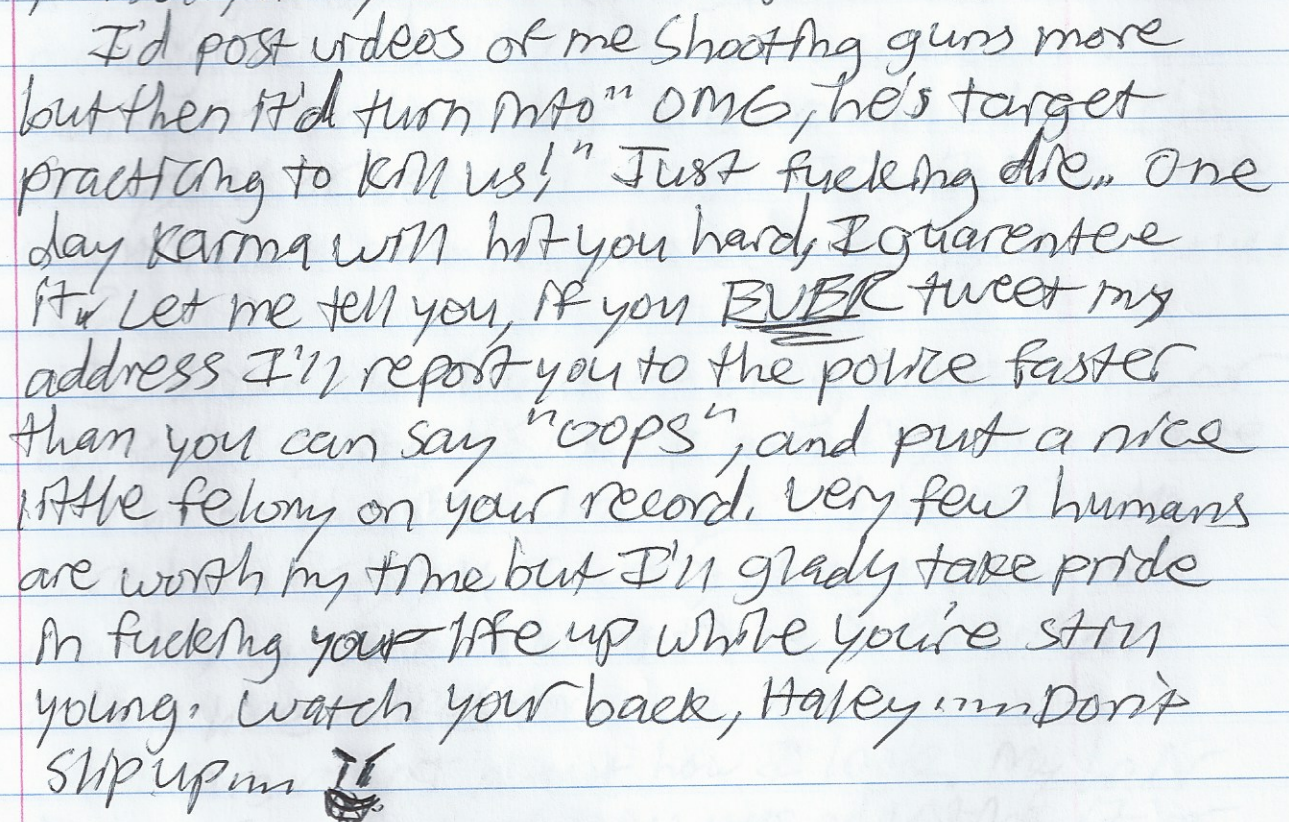 I'd post videos of me shooting guns more
but then it'd turn into" OMG, he's target
practicing to kill us!" Just fucking die.. One
day karma will hit you hard, I guarentee
it.. Let me tell you, if you EVER tweet my
address I'll report you to the police faster
than you can say "oops", and put a nice
little felony on your record. Very few humans
are worth my time but I'll glady take pride
in fucking your life up while you're still
young. Watch your back, Haley..... Don't
slip up....